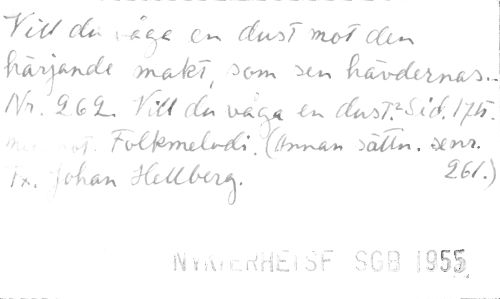 Vill du våga en dust mot den
härjande makt, som sen hävdernas...
Nr. 262. Vill du våga en dust? Sid. 175.
not. Folkmelodi. (Annan sättn. se nr.
Tx. Johan Hellberg. 261.)
NYKTERHETSF SGB 1955